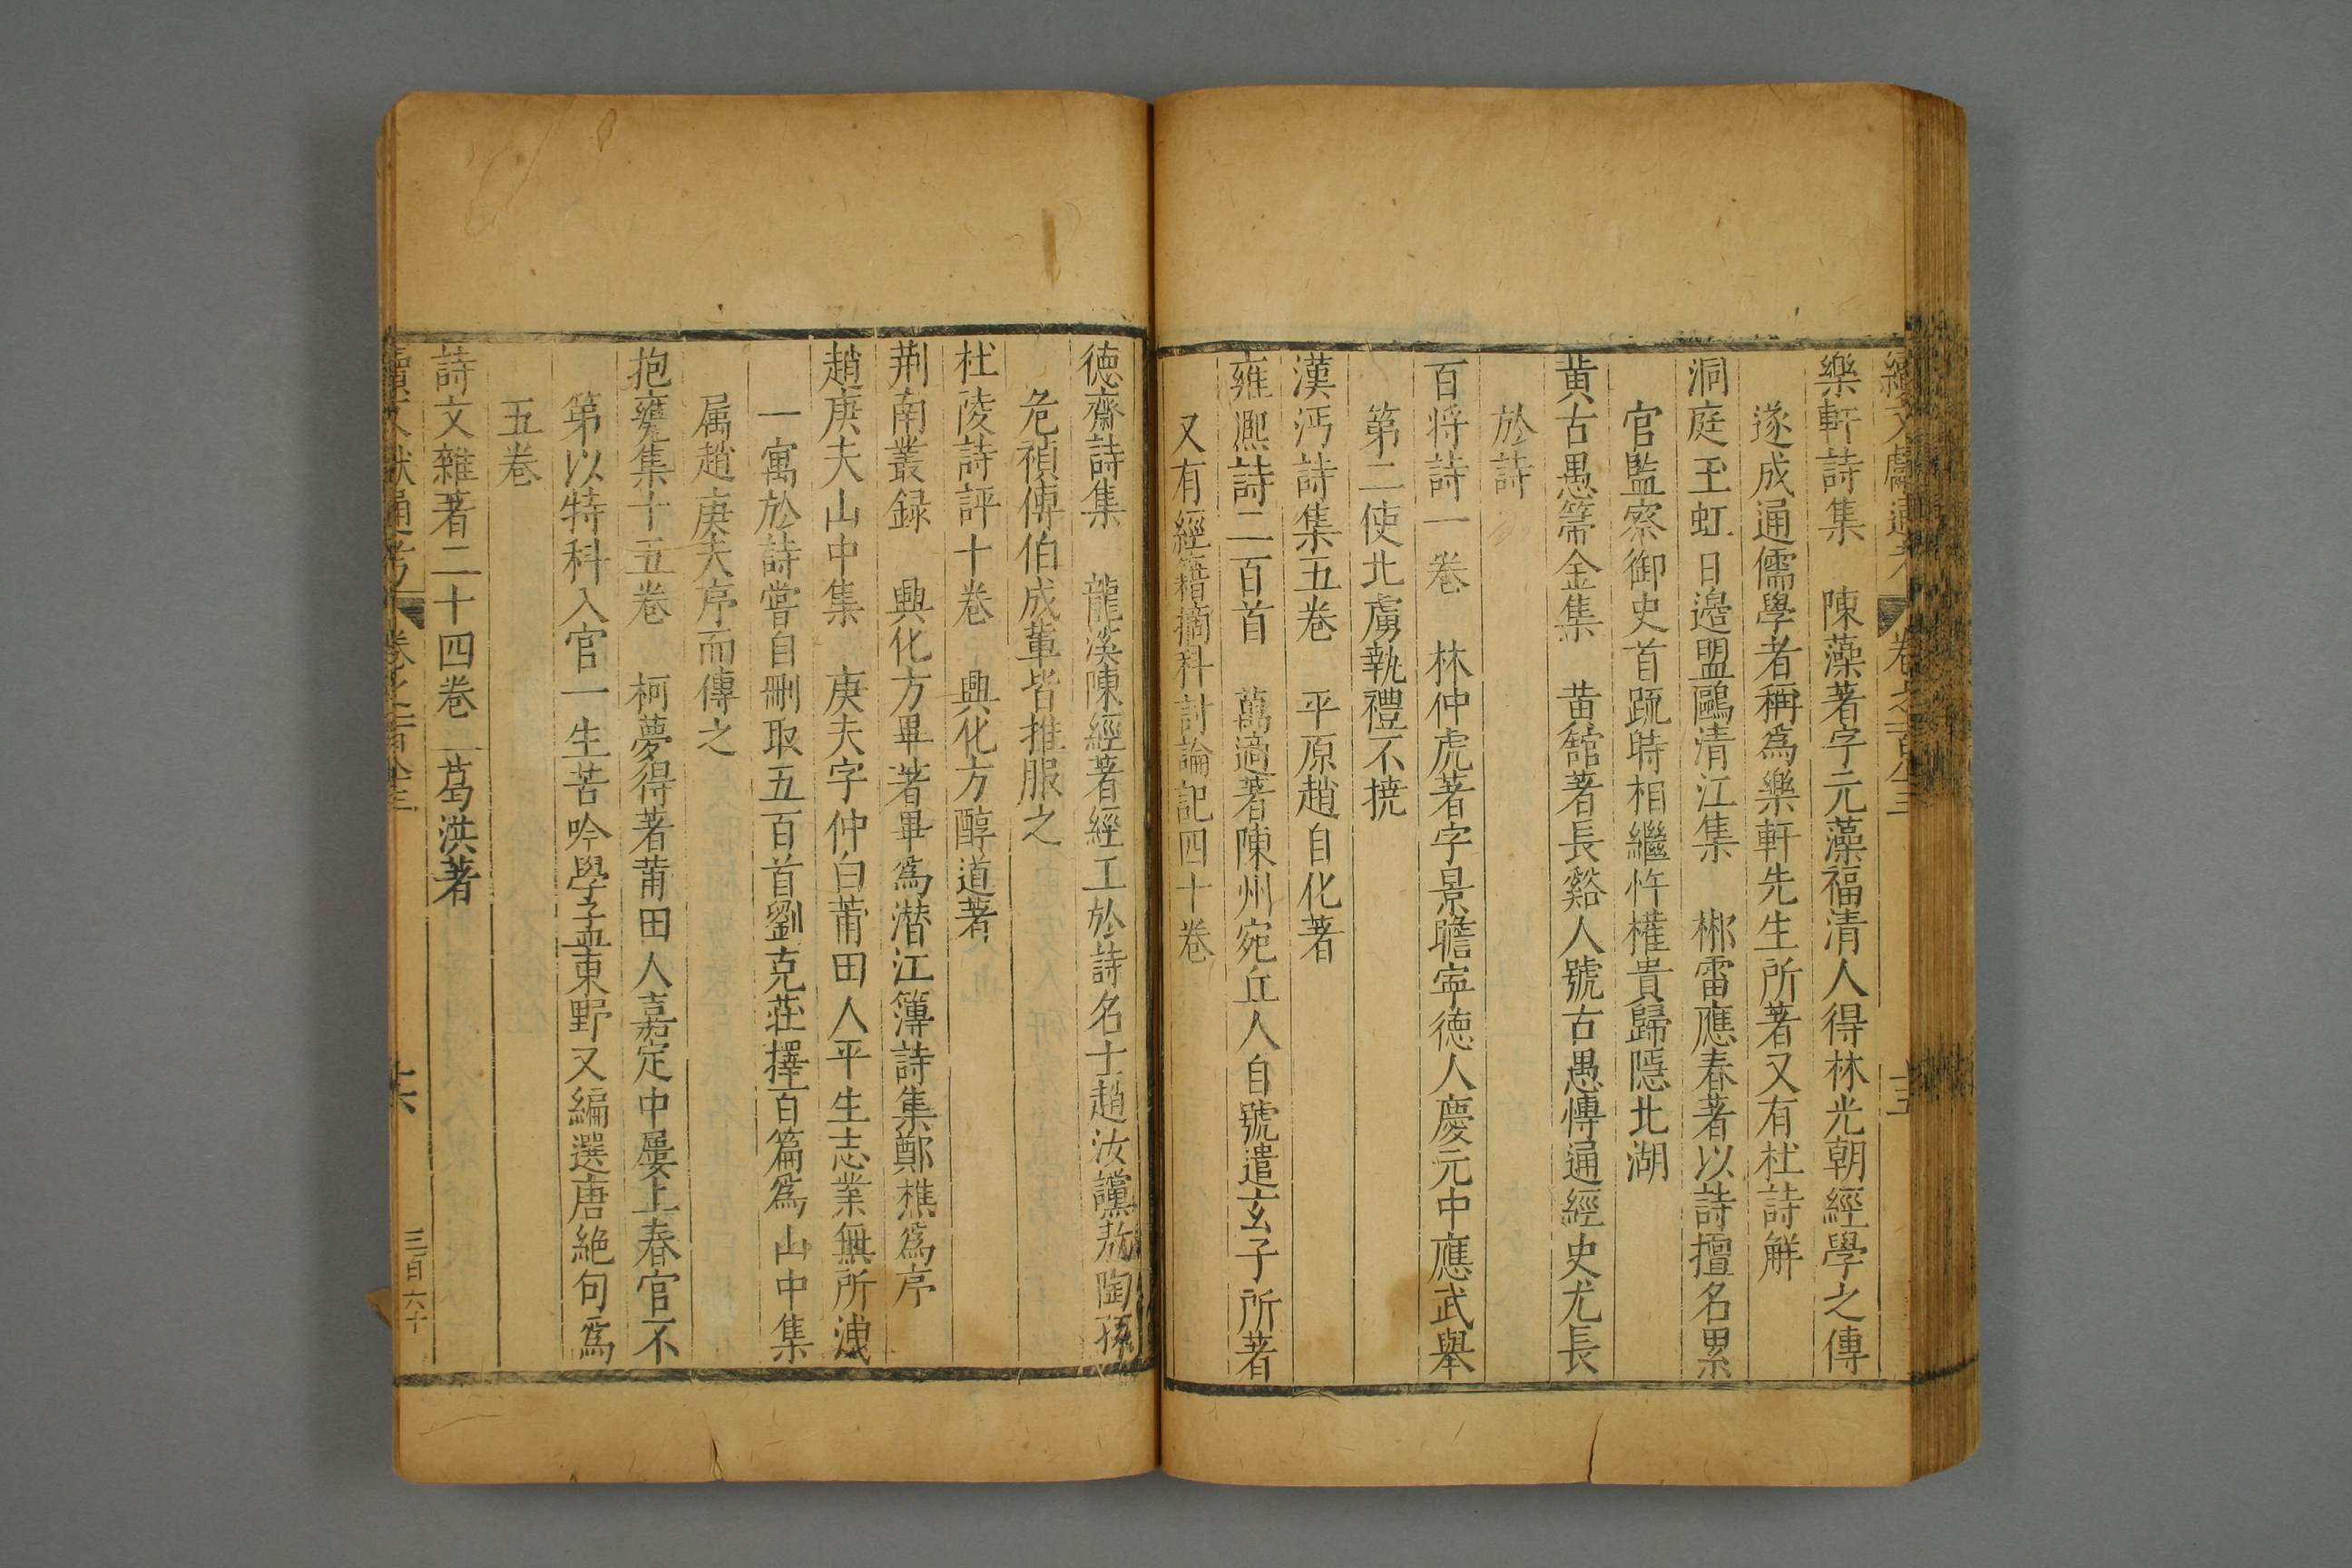 續文獻通考 卷之一百八十三 十五
樂軒詩集 陳藻著字元藻福清人得林光朝經學之傳
遂成通儒學者稱爲樂軒先生所著又有杜詩解
洞庭玉虹日邉盟鷗清江集 郴雷應春著以詩擅名累
官監察御史首疏時相繼忤權貴歸隱北湖
黄古愚箒金集 黄舘著長谿人號古愚愽通經史尤長
於詩
百将詩一卷 林仲虎著字景瞻寕徳人慶元中應武舉
第二使北虜執禮不撓
漢沔詩集五卷 平原趙自化著
雍熙詩二百首 萬適著陳州宛丘人自號遣玄子所著
又有經籍摘科討論記四十卷
徳齋詩集 龍溪陳經著經工於詩名士趙汝讜敖陶孫
危禎傅伯成軰皆推服之
杜陵詩評十卷 興化方醇道著
荆南叢録 興化方畢著畢爲潜江簿詩集鄭樵爲序
趙庚夫山中集 庚夫字仲白莆田人平生志業無所洩
一寓於詩嘗自刪取五百首劉克莊擇百篇爲山中集
属趙庚夫序而傳之
抱甕集十五卷 柯夢得著莆田人嘉定中屢上春官不
第以特科入官一生苦吟學孟東野又編選唐絶句爲
五卷
詩文雜著二十四卷 葛洪著
續文獻通考 卷之一百八十三 十六 三百六十